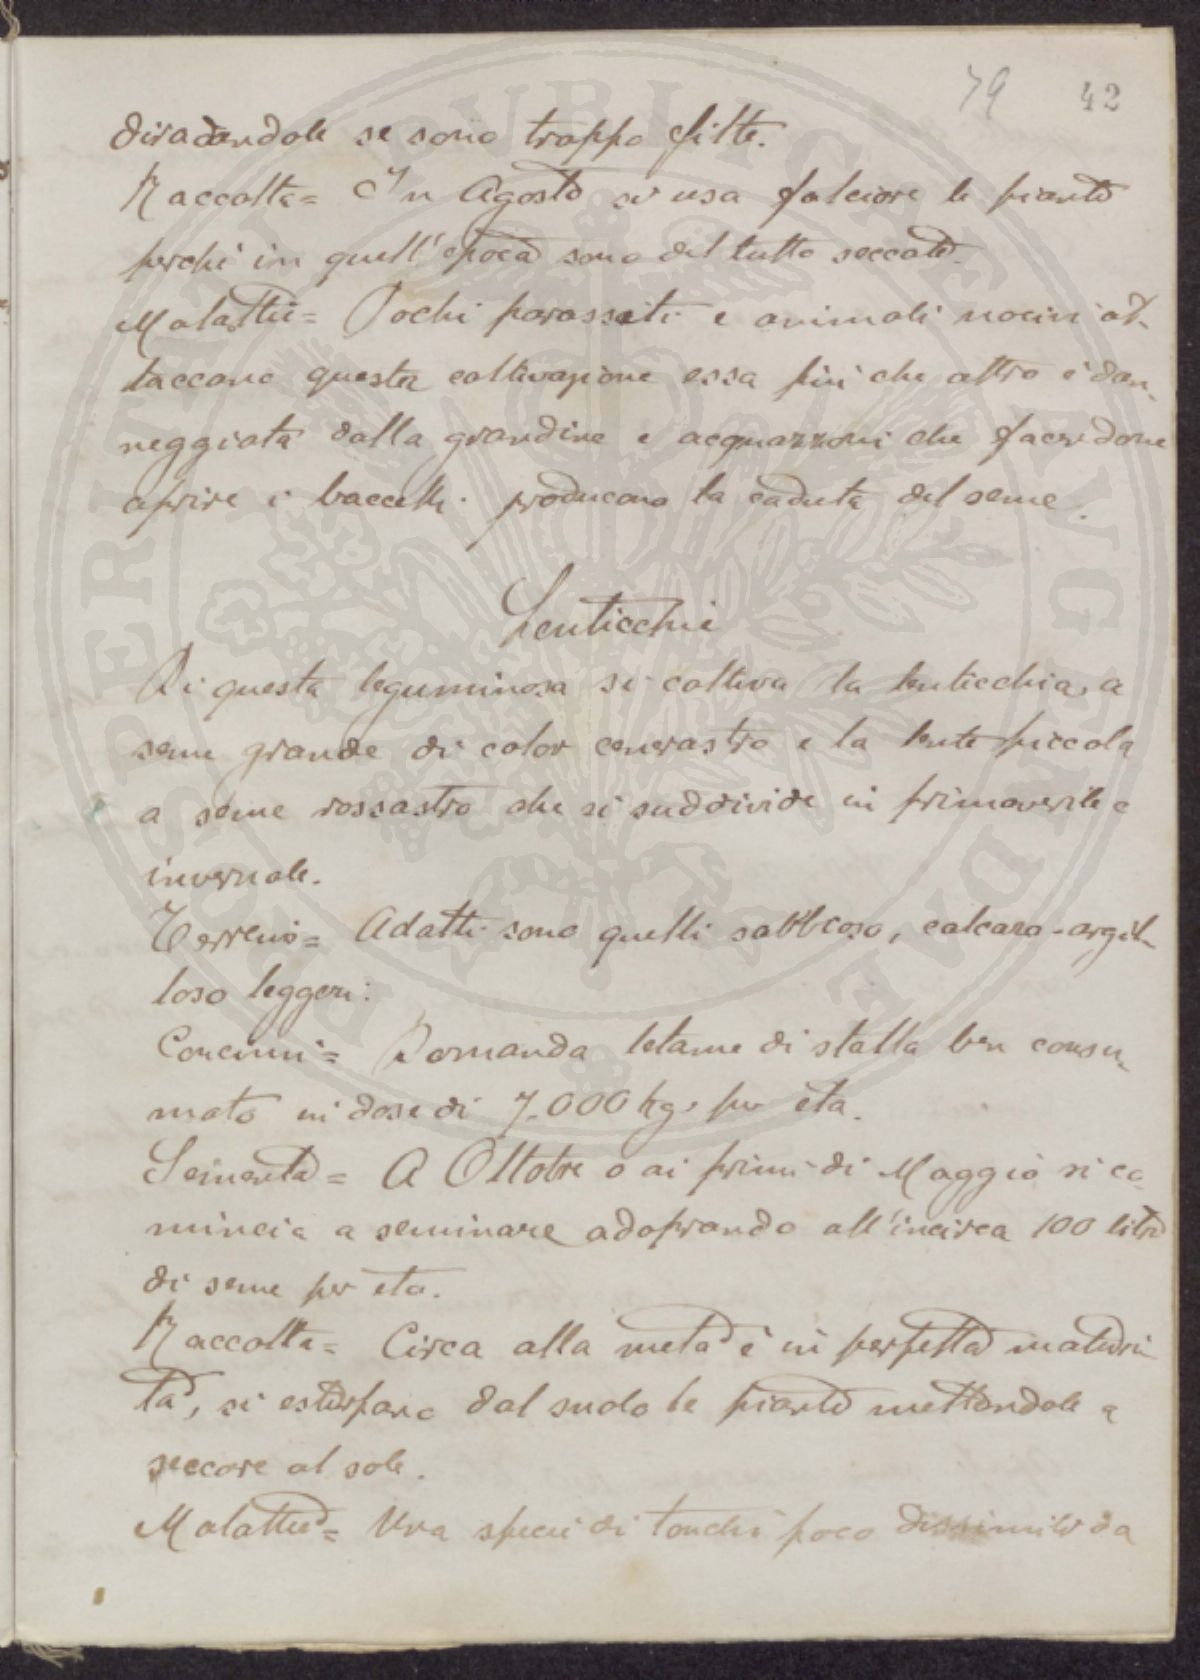 79 42
diradandole se sono troppo fitte.
Raccolta = In Agosto si usa falciare le piante
perchè in quell'epoca sono del tutto seccate.
Malattie = Pochi parassiti e animali nocivi at-
taccano questa coltivazione essa più che altro è dan-
neggiata dalla grandine e acquazzoni che facendone
aprire i baccelli producono la caduta del seme.
Lenticchie
Di questa leguminosa si coltiva la lenticchia, a
seme grande di color cenerastro e la lente piccola
a seme rossastro che si suddivide in primaverile e
invernale.
Terreno = Adatti sono quelli sabbioso, calcare-argil-
loso leggeri.
Concimi = Domanda letame di stalla ben consu-
mato in dose di 7.000 kg. per eta.
Sementa = A Ottobre o ai primi di Maggio si co-
mincia a seminare adoprando all'incirca 100 litri
di seme per eta.
Raccolta = Circa alla metà è in perfetta maturi-
tà, si estirpano dal suolo le piante mettendole a
seccare al sole.
Malattie = Una specie di tonchi poco dissimile da
PROSPERITATI PVBLICAE AVGENDAE